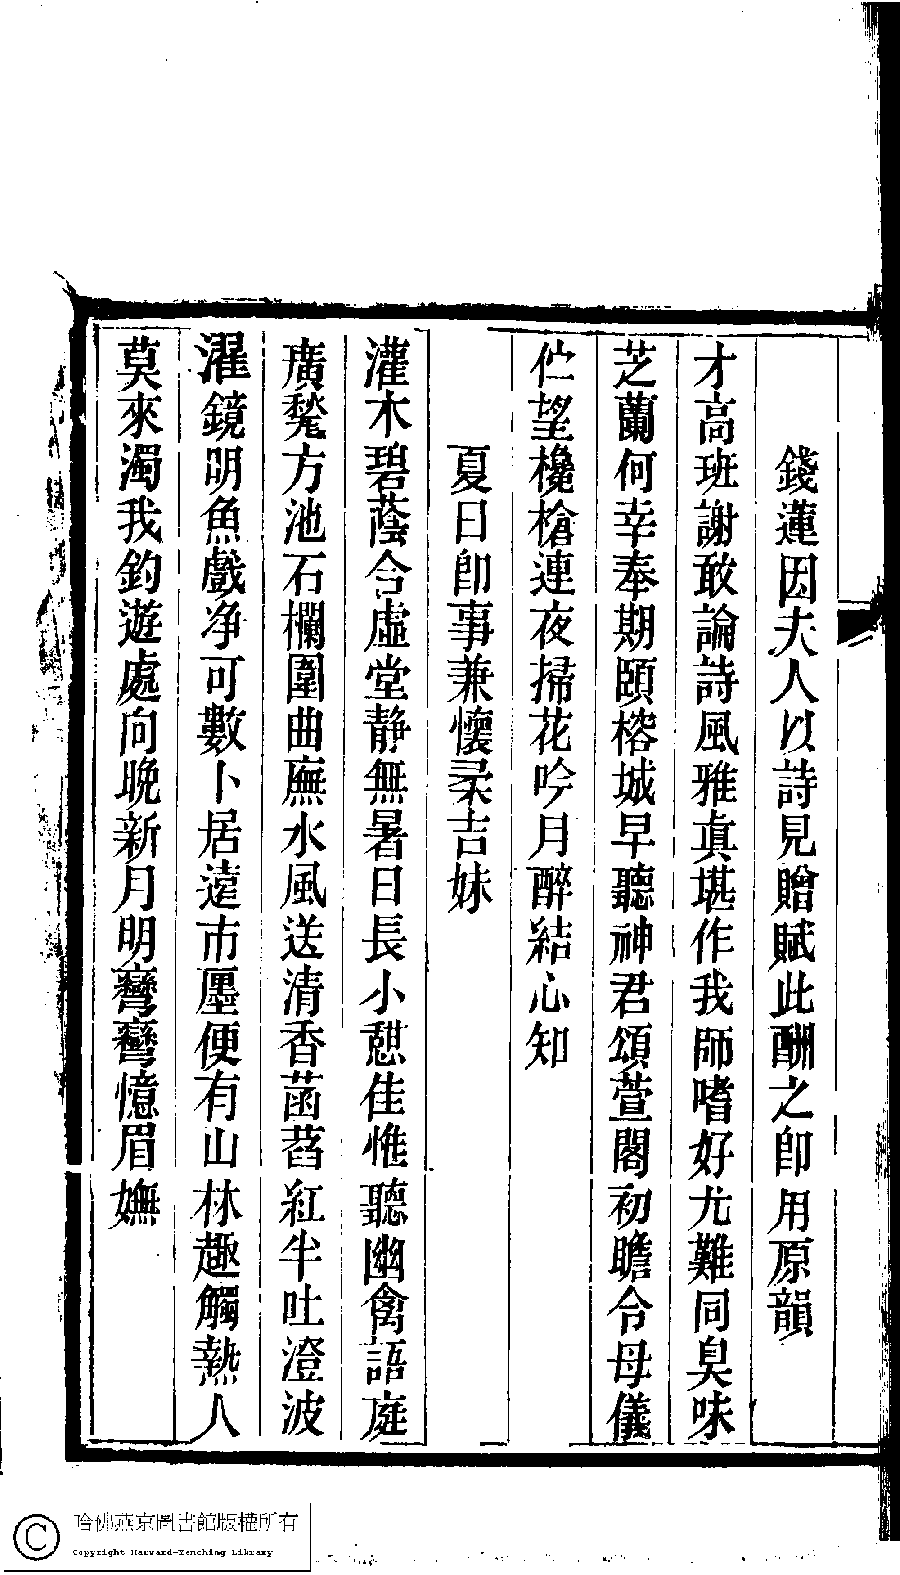 錢蓮因夫人以詩見贈賦此酬之卽用原韻
才高班謝敢論詩風雅眞堪作我師嗜好尤難同臭味
芝蘭何幸奉期頤榕城早聽神君頌萱閣初瞻令母儀
伫望欃槍連夜掃花吟月醉結心知
夏日卽事兼懷柔吉妹
灌木碧蔭合虛堂靜無暑日長小憇佳惟聽幽禽語庭
廣甃方池石欄圍曲廡水風送清香菡萏紅半吐澄波
濯鏡明魚戲净可數卜居遠市廛便有山林趣觸熱人
莫來濁我釣遊處向晚新月明彎彎憶眉嫵
哈佛燕京圖書館版權所有
Copyright Harvard-Yenching Library